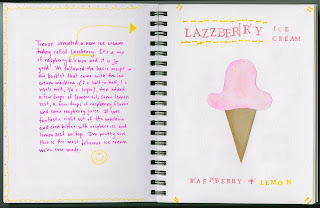 Trevor invented a new ice cream
today called Lazzberry. It's a mix
of raspberry & lemon and it is so
good! We followed the basic recipe in
the booklet that came with the ice
cream machine (2 c. half-n-half, 1 c.
whole milk, 3/4 c. sugar), then added
a few drops of lemon oil, some lemon
zest, a few drops of raspberry flavor
and some raspberry juice. It was
fantastic right out of the machine
and even better with raspberries and
lemon zest on top. I'm pretty sure
this is the most delicious ice cream
we've ever made.
LAZZBERRY ICE
CREAM
RASPBERRY + LEMON